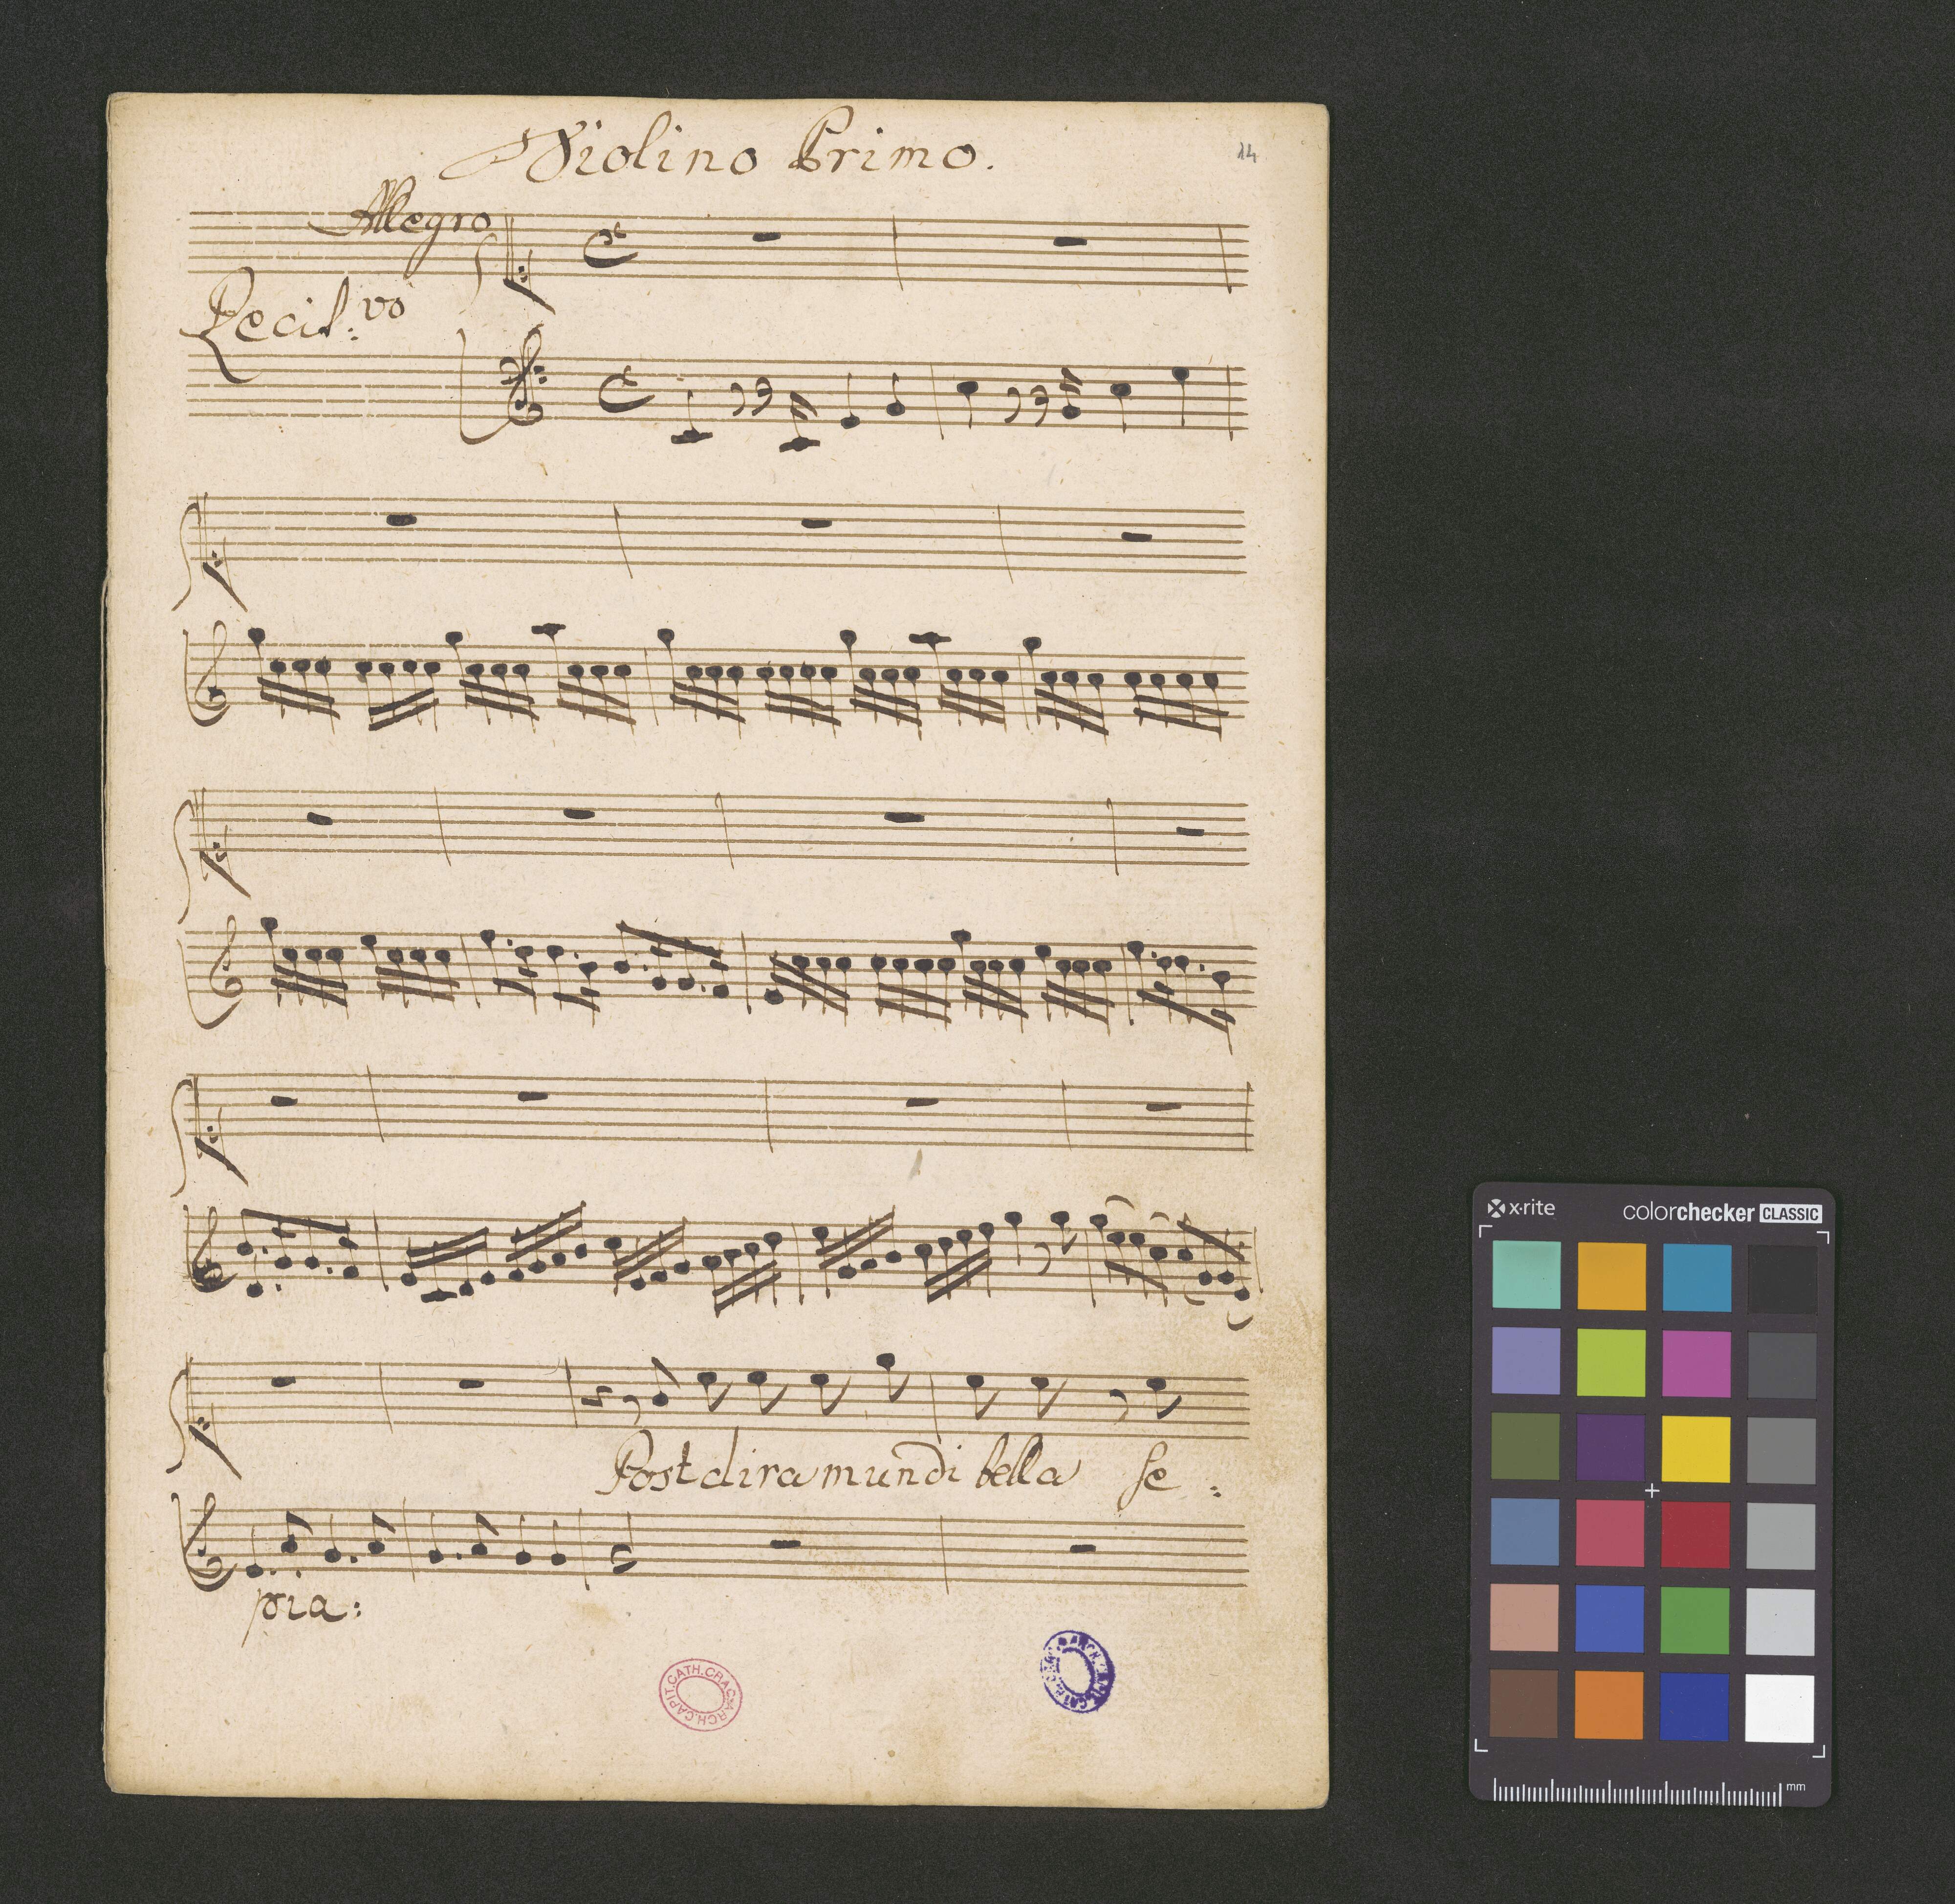 Violino Primo.
14
Allegro
Recit: vo
Post dira mundi bella se:
pia:
ARCH.CAPIT.CATH.CRAC
x·rite
colorchecker CLASSIC
mm